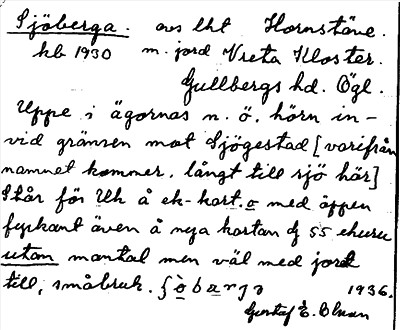 Sjöberga. avs lht Hornstäve.
hb 1930 m. jord Vreta Kloster.
Gullbergs hd. Ögl.
Uppe i ägornas n. ö. hörn in-
vid gränsen mot Sjögestad [varifrån
namnet kommer, långt till sjö här]
Står för Uh å ek-kart. o med öppen
fyrkant även å nya kartan 55 ehuru
utan mantal men väl med jord
till, småbruk.
1936.
Gustaf E. Olsson